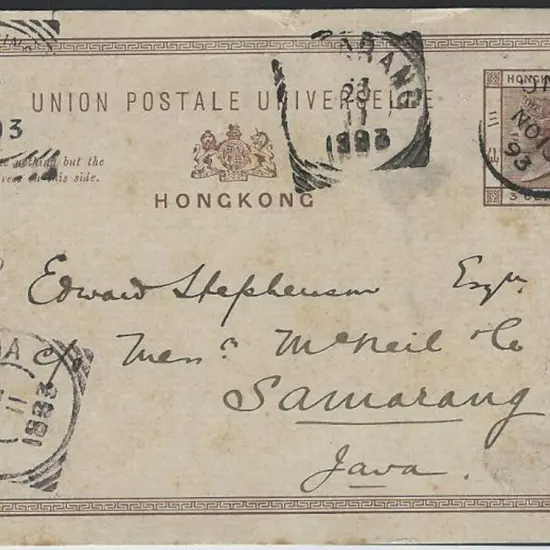 UNION POSTALE UNIVERSELLE
nothing but the
on this side.
HONGKONG
ARANG
23
11
1893
HONGK
NO 15
93
3 CEN
Edward Stephenson Esqr
c/o Messrs McNeil & Co
Samarang
Java.
DA
11
1893
93